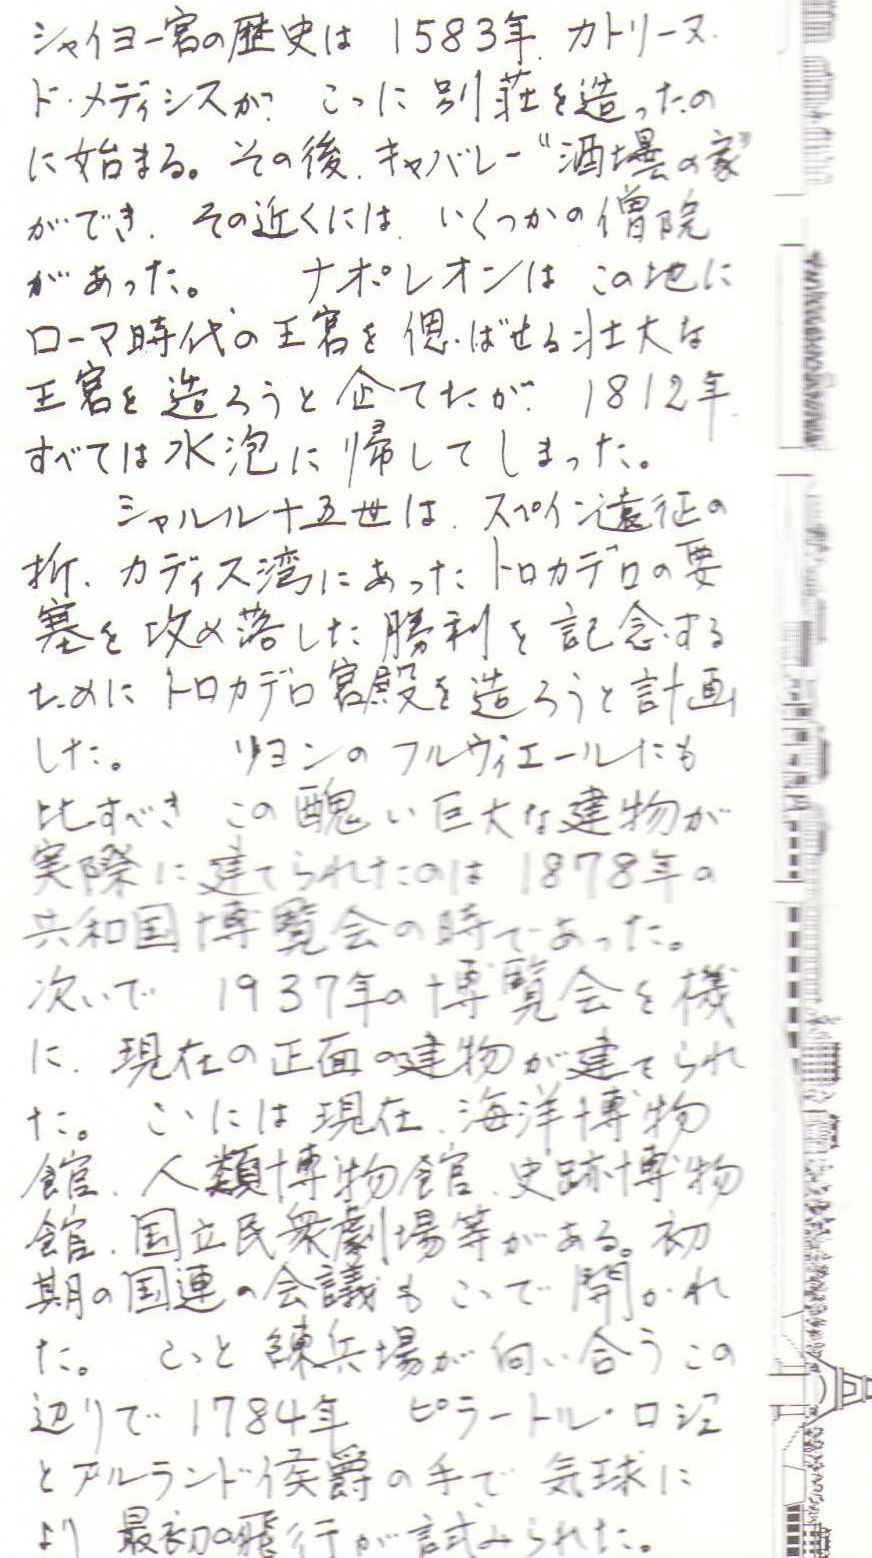 シャイヨー宮の歴史は 1583年、カトリーヌ・
ド・メディシスが、 こゝに 別荘を造ったの
に始まる。その後、キャバレー“酒場の家”
ができ、 その近くには、いくつかの僧院
があった。 ナポレオンは この地に
ローマ時代の王宮を偲ばせる壮大な
王宮を造ろうと企てたが、 1812年
すべては水泡に帰してしまった。
シャルル十五世は、スペイン遠征の
折、カディス湾にあったトロカデロの要
塞を攻め落した勝利を記念する
ためにトロカデロ宮殿を造ろうと計画
した。 リヨンのフルヴィエールにも
比すべき この醜い巨大な建物が
実際に建てられたのは 1878年の
共和国博覧会の時であった。
次いで 1937年の博覧会を機
に、現在の正面の建物が建てられ
た。 こゝには現在、海洋博物
館、人類博物館、史跡博物
館、国立民衆劇場等がある。初
期の国連の会議も こゝで開かれ
た。 こゝと練兵場が向い合うこの
辺りで 1784年 ピラートル・ロジェ
とアルランド侯爵の手で 気球に
より 最初の飛行が試みられた。